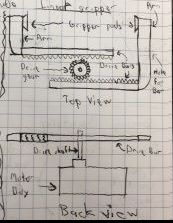 Linear gripper
Arm
Gripper pads
Arm
Drive Bars
Drive
gear
Hole
For
Bar
Top View
Drive shaft
Drive Bar
Motor
Back view